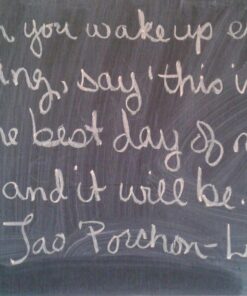 n you wake up e
ing, say 'this i
he best day of m
and it will be.
Tao Porchon-L